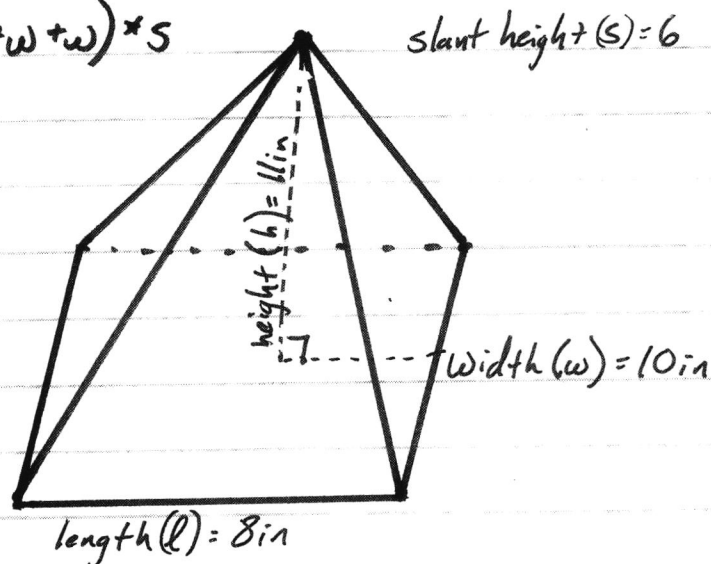 +w+w)*s
slant height(s)=6
height(h)=11in
width(w)=10in
length(l)=8in